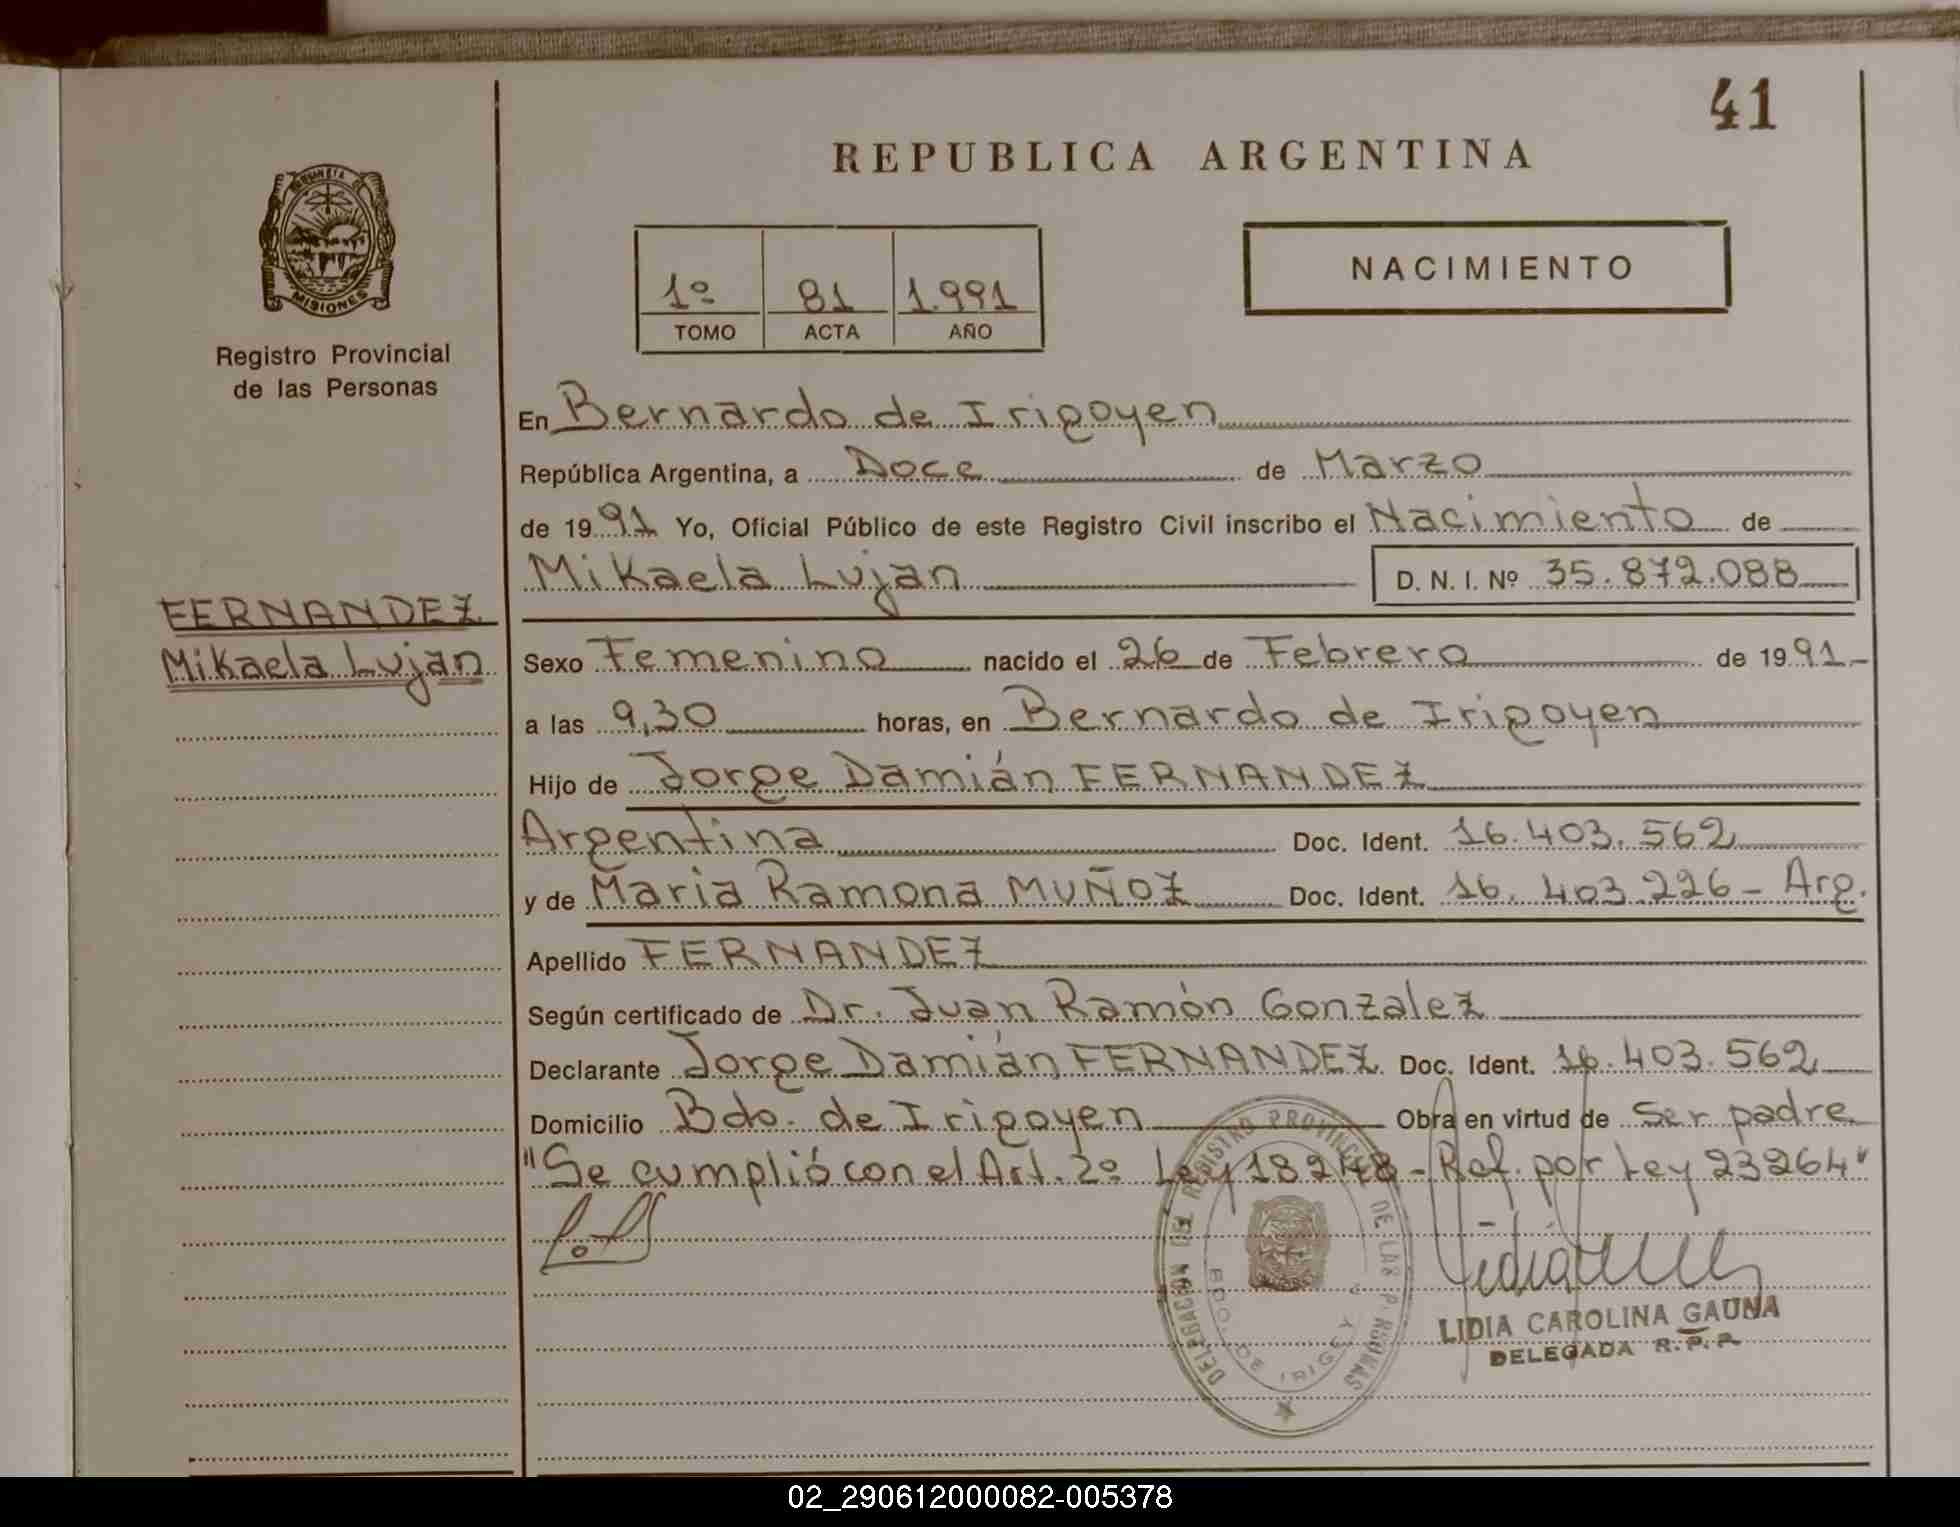 41
REPUBLICA ARGENTINA
PROVINCIA DE
MISIONES
Registro Provincial
de las Personas
1º 81 1.991
TOMO ACTA AÑO
NACIMIENTO
En Bernardo de Irigoyen
República Argentina, a Doce de Marzo
de 1991 Yo, Oficial Público de este Registro Civil inscribo el Nacimiento de
Mikaela Lujan D. N. I. Nº 35.872.088
FERNANDEZ
Mikaela Lujan
Sexo Femenino nacido el 26 de Febrero de 1991.-
a las 9,30 horas, en Bernardo de Irigoyen
Hijo de Jorge Damián FERNANDEZ
Argentina Doc. Ident. 16.403.562
y de Maria Ramona MUÑOZ Doc. Ident. 16.403.226- Arg.
Apellido FERNANDEZ
Según certificado de Dr. Juan Ramón Gonzalez
Declarante Jorge Damián FERNANDEZ Doc. Ident. 16.403.562
Domicilio Bdo. de Irigoyen Obra en virtud de Ser padre
"Se cumplió con el Art. 2º Ley 18248 - Ref. por Ley 23264"
DELEGACION DEL REGISTRO PROVINCIAL DE LAS PERSONAS
BDO. DE IRIGOYEN
LIDIA CAROLINA GAUNA
DELEGADA R.P.P.
02_290612000082-005378